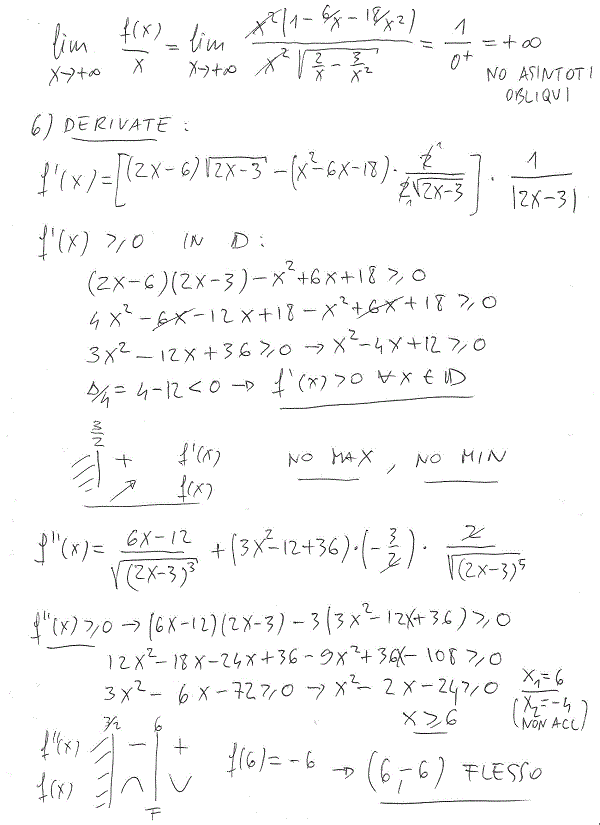 lim x→+∞ f(x)/x = lim x→+∞ x²(1 - 6/x - 18/x²) / x²√(2/x - 3/x²) = 1/0⁺ = +∞
NO ASINTOTI
OBLIQUI
6) DERIVATE:
f'(x) = [(2x-6)√(2x-3) - (x²-6x-18)·2/(2√(2x-3))] · 1/|2x-3|
f'(x) ≥ 0 IN D:
(2x-6)(2x-3) - x² + 6x + 18 ≥ 0
4x² - 6x - 12x + 18 - x² + 6x + 18 ≥ 0
3x² - 12x + 36 ≥ 0 → x² - 4x + 12 ≥ 0
Δ/4 = 4 - 12 < 0 → f'(x) > 0 ∀x ∈ D
3/2
+ f'(x) NO MAX, NO MIN
↗ f(x)
f''(x) = (6x-12)/√(2x-3)³ + (3x²-12+36)·(-3/2)·2/√(2x-3)⁵
f''(x) ≥ 0 → (6x-12)(2x-3) - 3(3x²-12x+36) ≥ 0
12x² - 18x - 24x + 36 - 9x² + 36x - 108 ≥ 0
3x² - 6x - 72 ≥ 0 → x² - 2x - 24 ≥ 0 x₁ = 6
(x₂ = -4
NON ACC)
x ≥ 6
3/2 6
f''(x) - + f(6) = -6 → (6,-6) FLESSO
f(x) ∩ ∪
F